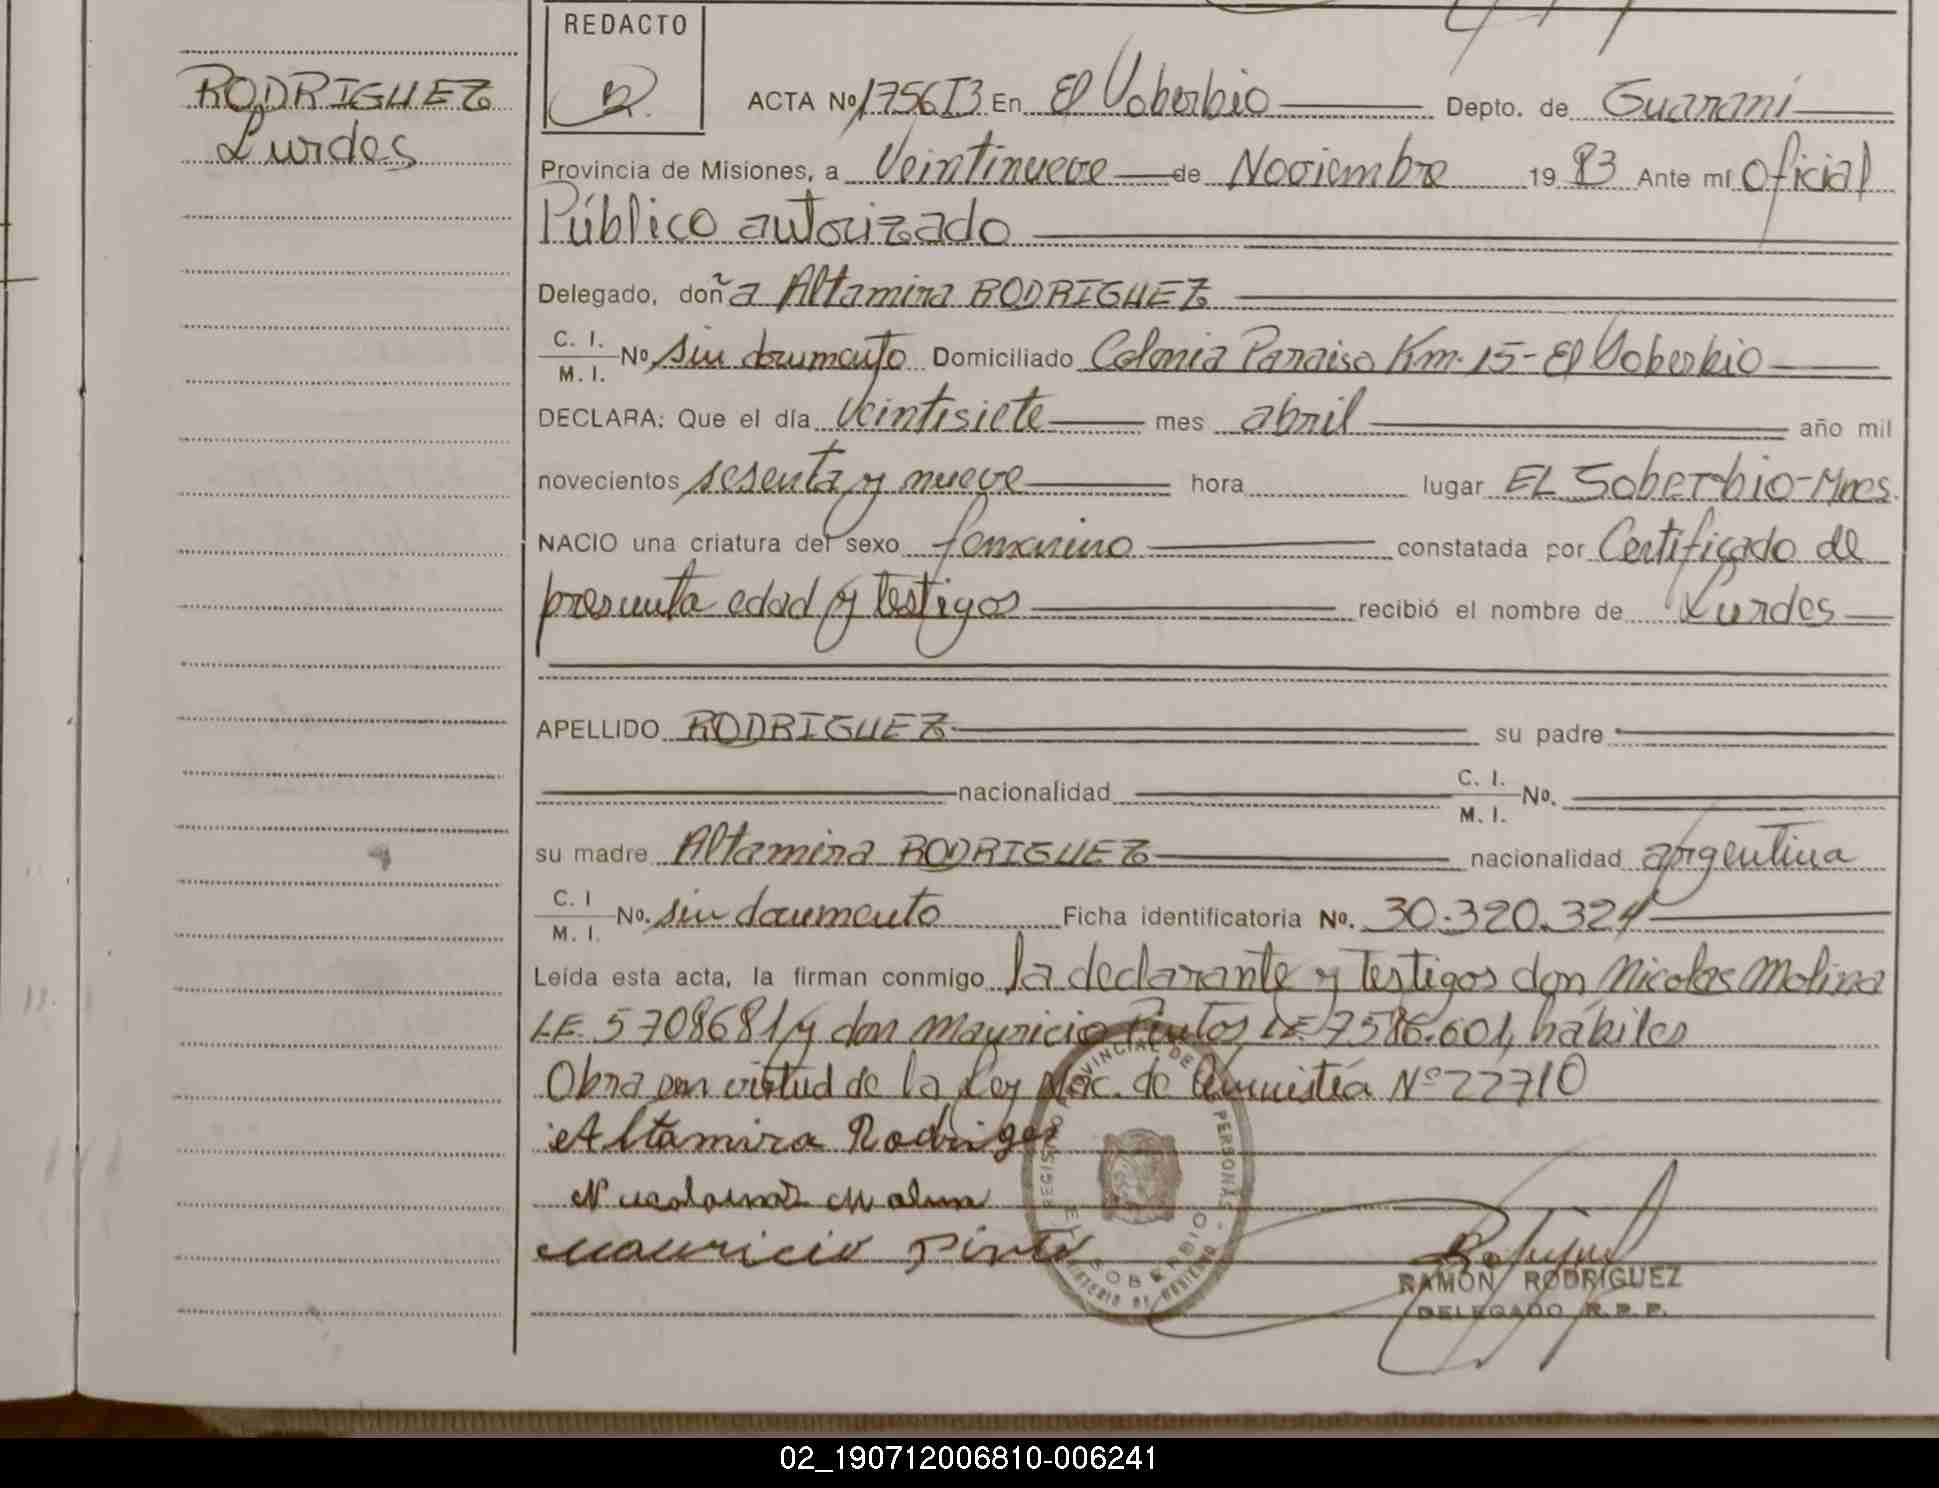 RODRIGUEZ
Lurdes
REDACTO
ACTA Nº 1756T3 En El Soberbio Depto. de Guaraní
Provincia de Misiones, a Veintinueve de Noviembre 1983 Ante mí Oficial
Público autorizado
Delegado, doña Altamira RODRIGUEZ
C. I. / M. I. Nº sin documento Domiciliado Colonia Paraiso Km. 15 - El Soberbio
DECLARA: Que el día veintisiete mes abril año mil
novecientos sesenta y nueve hora lugar EL Soberbio - Mnes.
NACIO una criatura del sexo femenino constatada por Certificado de
presunta edad y testigos recibió el nombre de Lurdes
APELLIDO RODRIGUEZ su padre
nacionalidad C. I. / M. I. Nº.
su madre Altamira RODRIGUEZ nacionalidad argentina
C. I / M. I. Nº. sin documento Ficha identificatoria Nº. 30.320.324
Leída esta acta, la firman conmigo la declarante y testigos don Nicolas Molina
L.E. 5708681 y don Mauricio Pintos L.E. 7586.601, hábiles
Obra por virtud de la Ley Nac. de Amnistía Nº 22710
Altamira Rodrigez
Molina
Mauricio Pinto
REGISTRO PROVINCIAL DE PERSONAS
EL SOBERBIO
MINISTERIO DE GOBIERNO
RAMÓN RODRÍGUEZ
DELEGADO R. P. P.
02_190712006810-006241